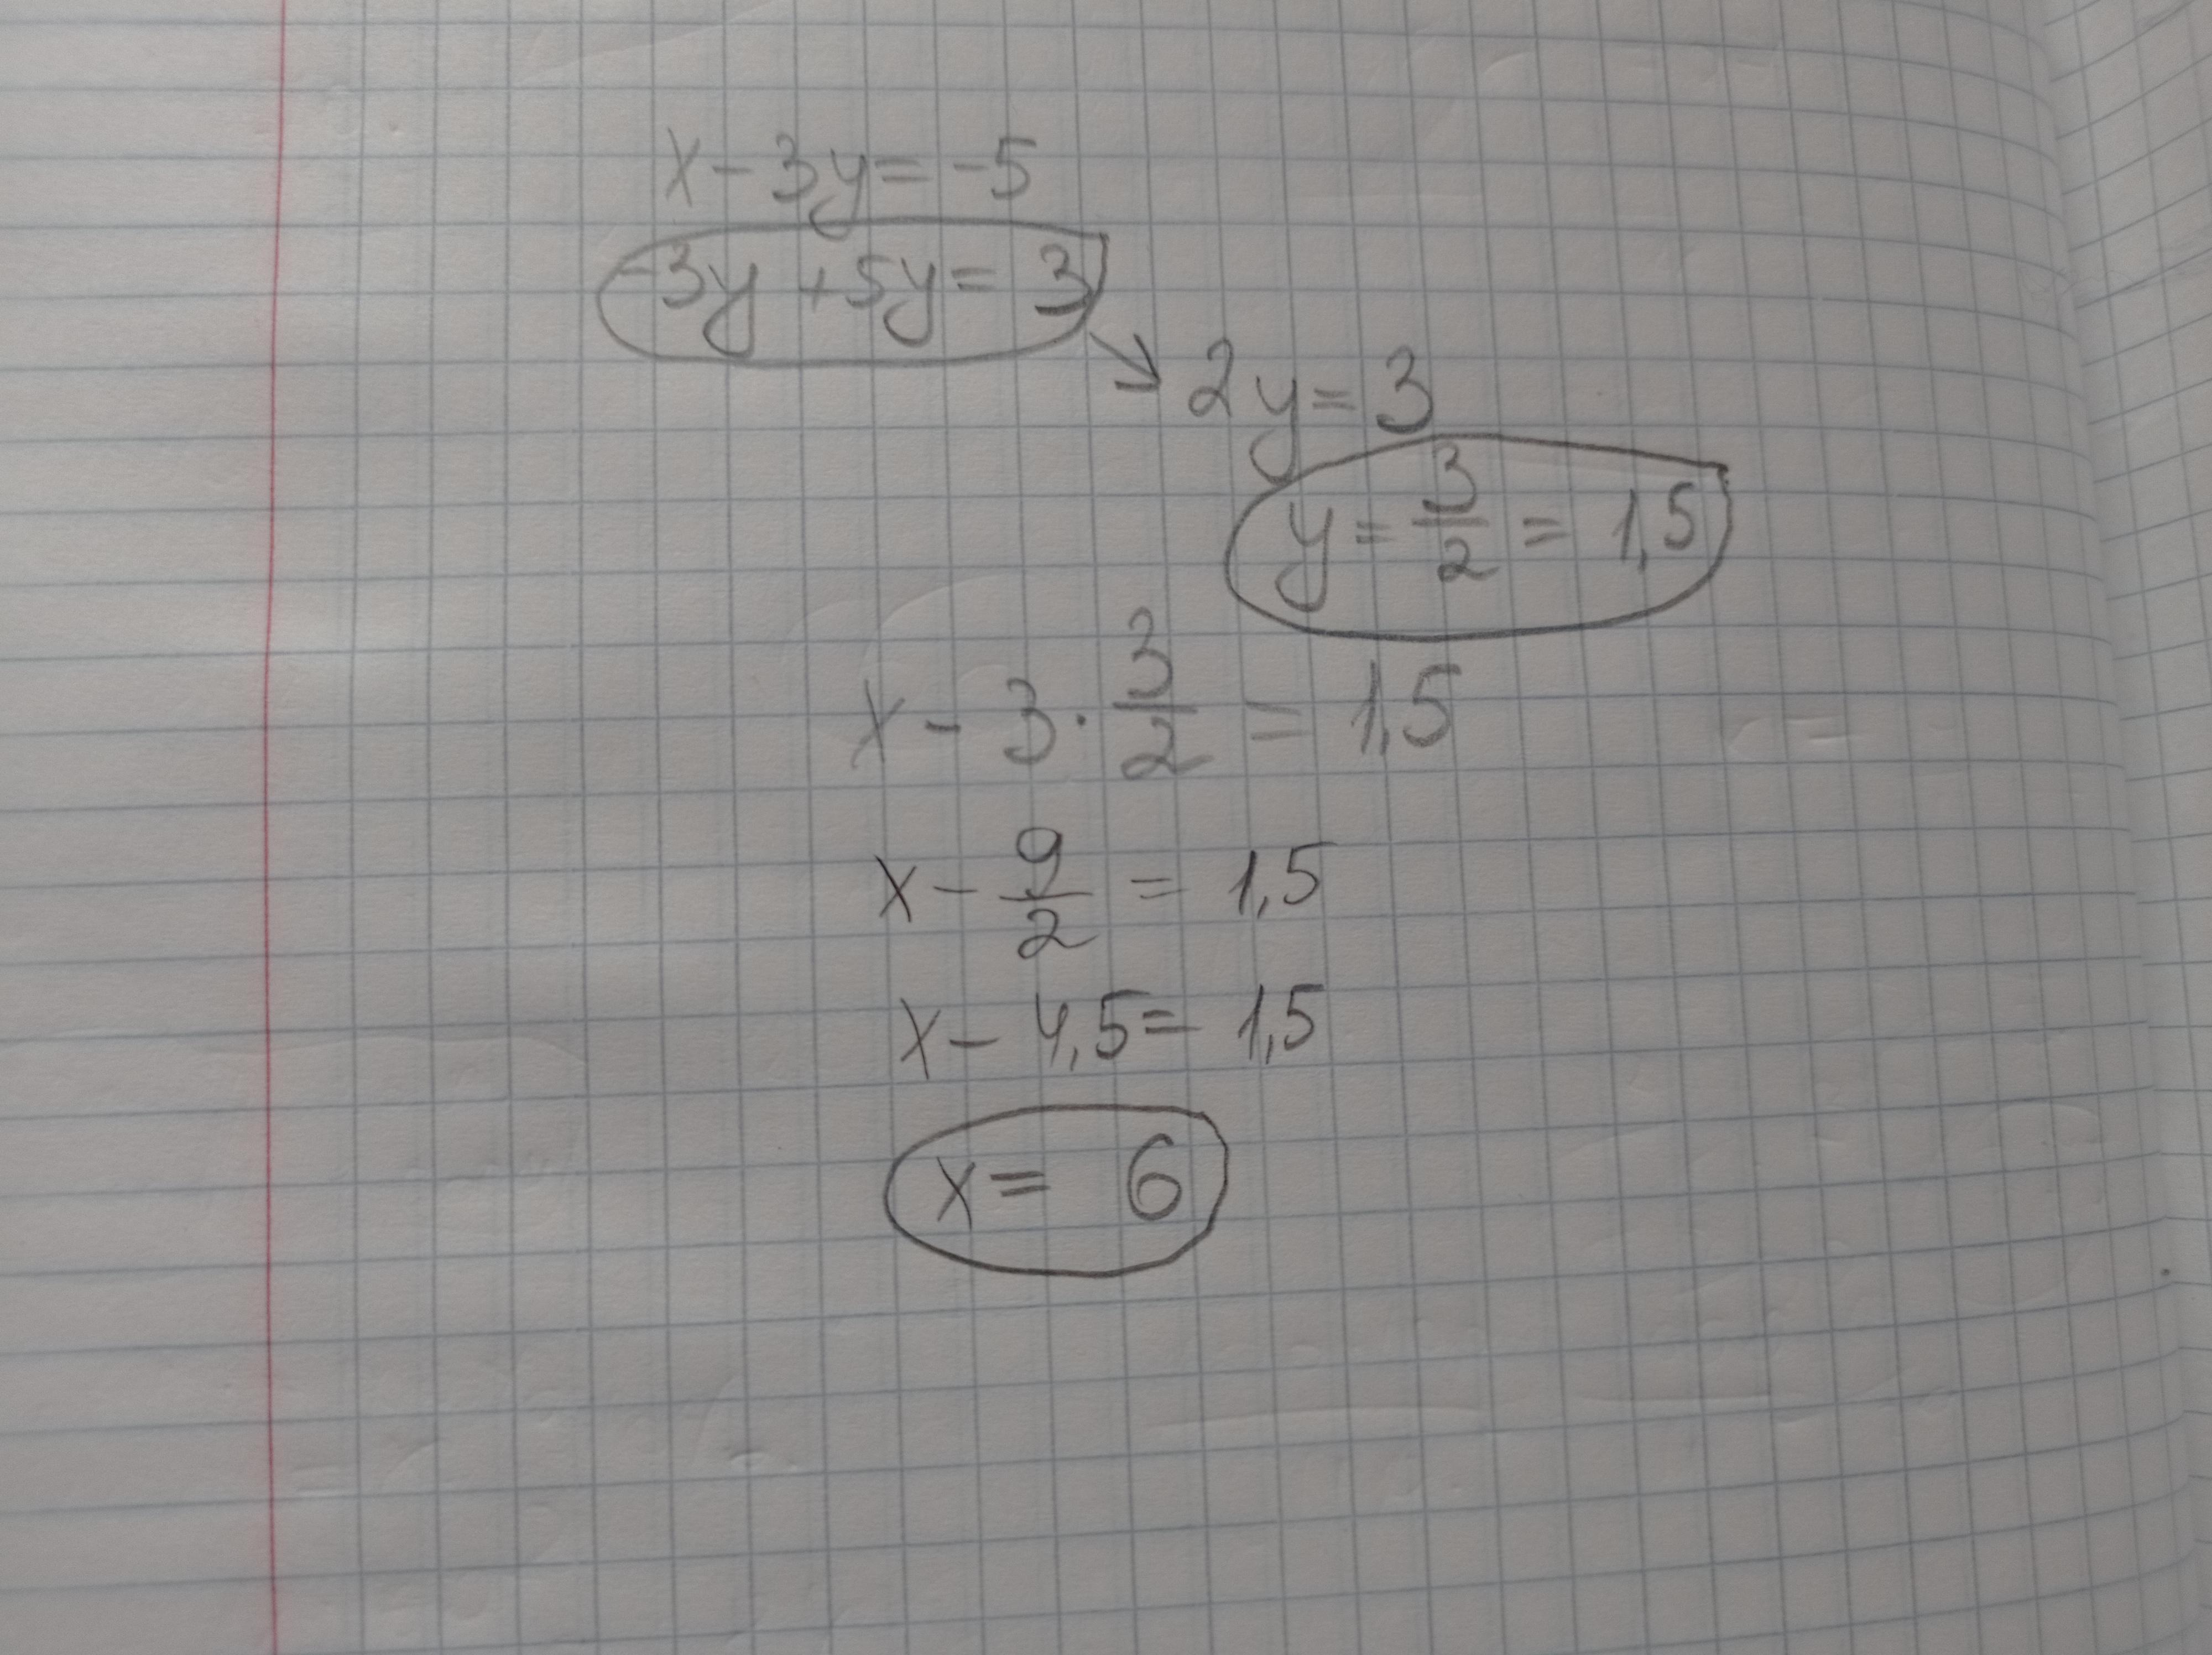 x - 3y = -5
-3y + 5y = 3
→ 2y = 3
y = 3/2 = 1,5
x - 3 · 3/2 = 1,5
x - 9/2 = 1,5
x - 4,5 = 1,5
x = 6